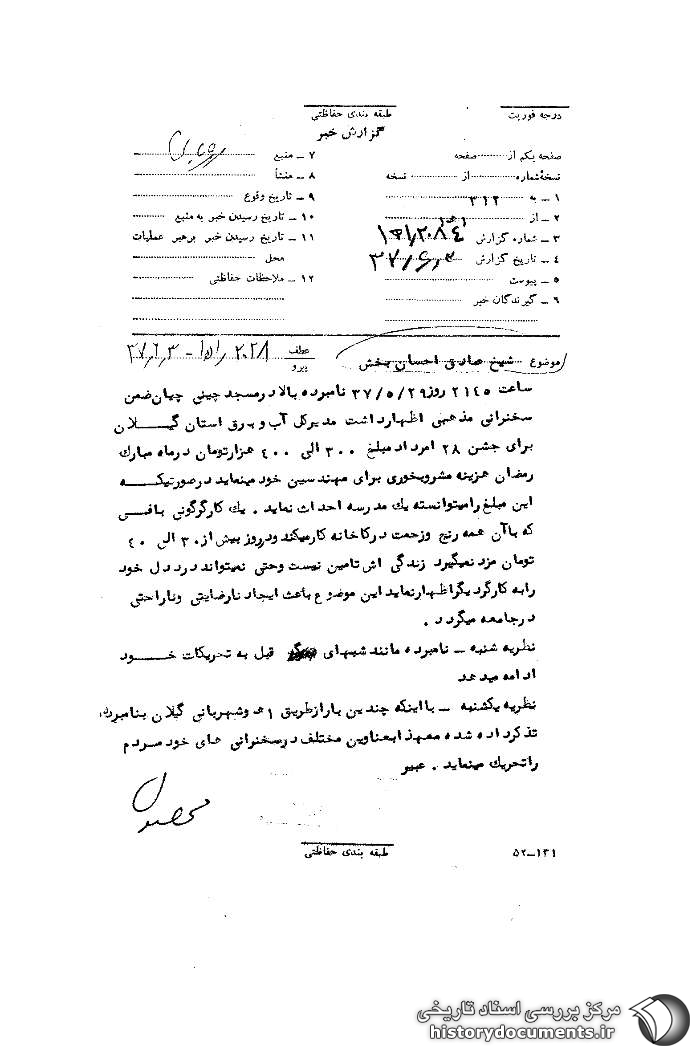 درجه فوریت
طبقه بندی حفاظتی
گزارش خبر
صفحه یکم از ........ صفحه
نسخهٔ شماره ........ از ........ نسخه
۱ ـ به ۳۱۲
۲ ـ از ۱ ه‍ ۱
۳ ـ شماره گزارش
۴ ـ تاریخ گزارش ۳۷/۶/۳
۵ ـ پیوست
۶ ـ گیرندگان خبر
۷ ـ منبع
۸ ـ منشأ
۹ ـ تاریخ وقوع
۱۰ ـ تاریخ رسیدن خبر به منبع
۱۱ ـ تاریخ رسیدن خبر برهبر عملیات
محل
۱۲ ـ ملاحظات حفاظتی
موضوع شیخ صادق احسان بخش
عطف
پیرو
ساعت ۲۱۴۵ روز ۳۷/۵/۲۹ نامبرده بالا در مسجد چینی چیان ضمن
سخنرانی مذهبی اظهار داشت مدیرکل آب و برق استان گیلان
برای جشن ۲۸ امرداد مبلغ ۳۰۰ الی ۴۰۰ هزارتومان در ماه مبارک
رمضان هزینه مشروبخوری برای مهندسین خود مینماید در صورتیکه
این مبلغ را میتوانسته یک مدرسه احداث نماید . یک کارگر گونی بافی
که با آن همه رنج و زحمت در کاخانه کار میکند و در روز بیش از ۳۰ الی ۴۰
تومان مزد نمیگیرد زندگی اش تامین نیست و حتی نمیتواند درد دل خود
را به کارگر دیگر اظهار نماید این موضوع باعث ایجاد نارضایتی و ناراحتی
در جامعه میگردد .
نظریه شنبه ـ نامبرده مانند شبهای قبل به تحریکات خود
ادامه میدهد
نظریه یکشنبه ـ با اینکه چندین بار از طریق ۱ ه‍ و شهربانی گیلان بنامبرده
تذکر داده شده معهذا بعناوین مختلف در سخنرانی های خود مردم
را تحریک مینماید .
طبقه بندی حفاظتی
۵۲-۱۳۱
مرکز بررسی اسناد تاریخی
historydocuments.ir